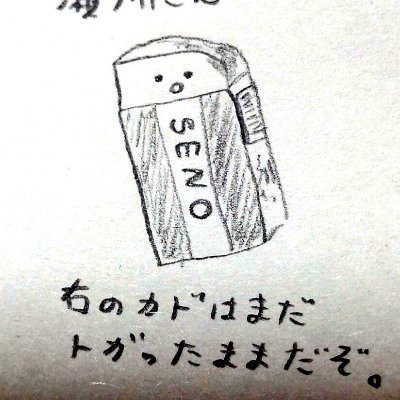 SENO
右のカドはまだ
トガったままだぞ。